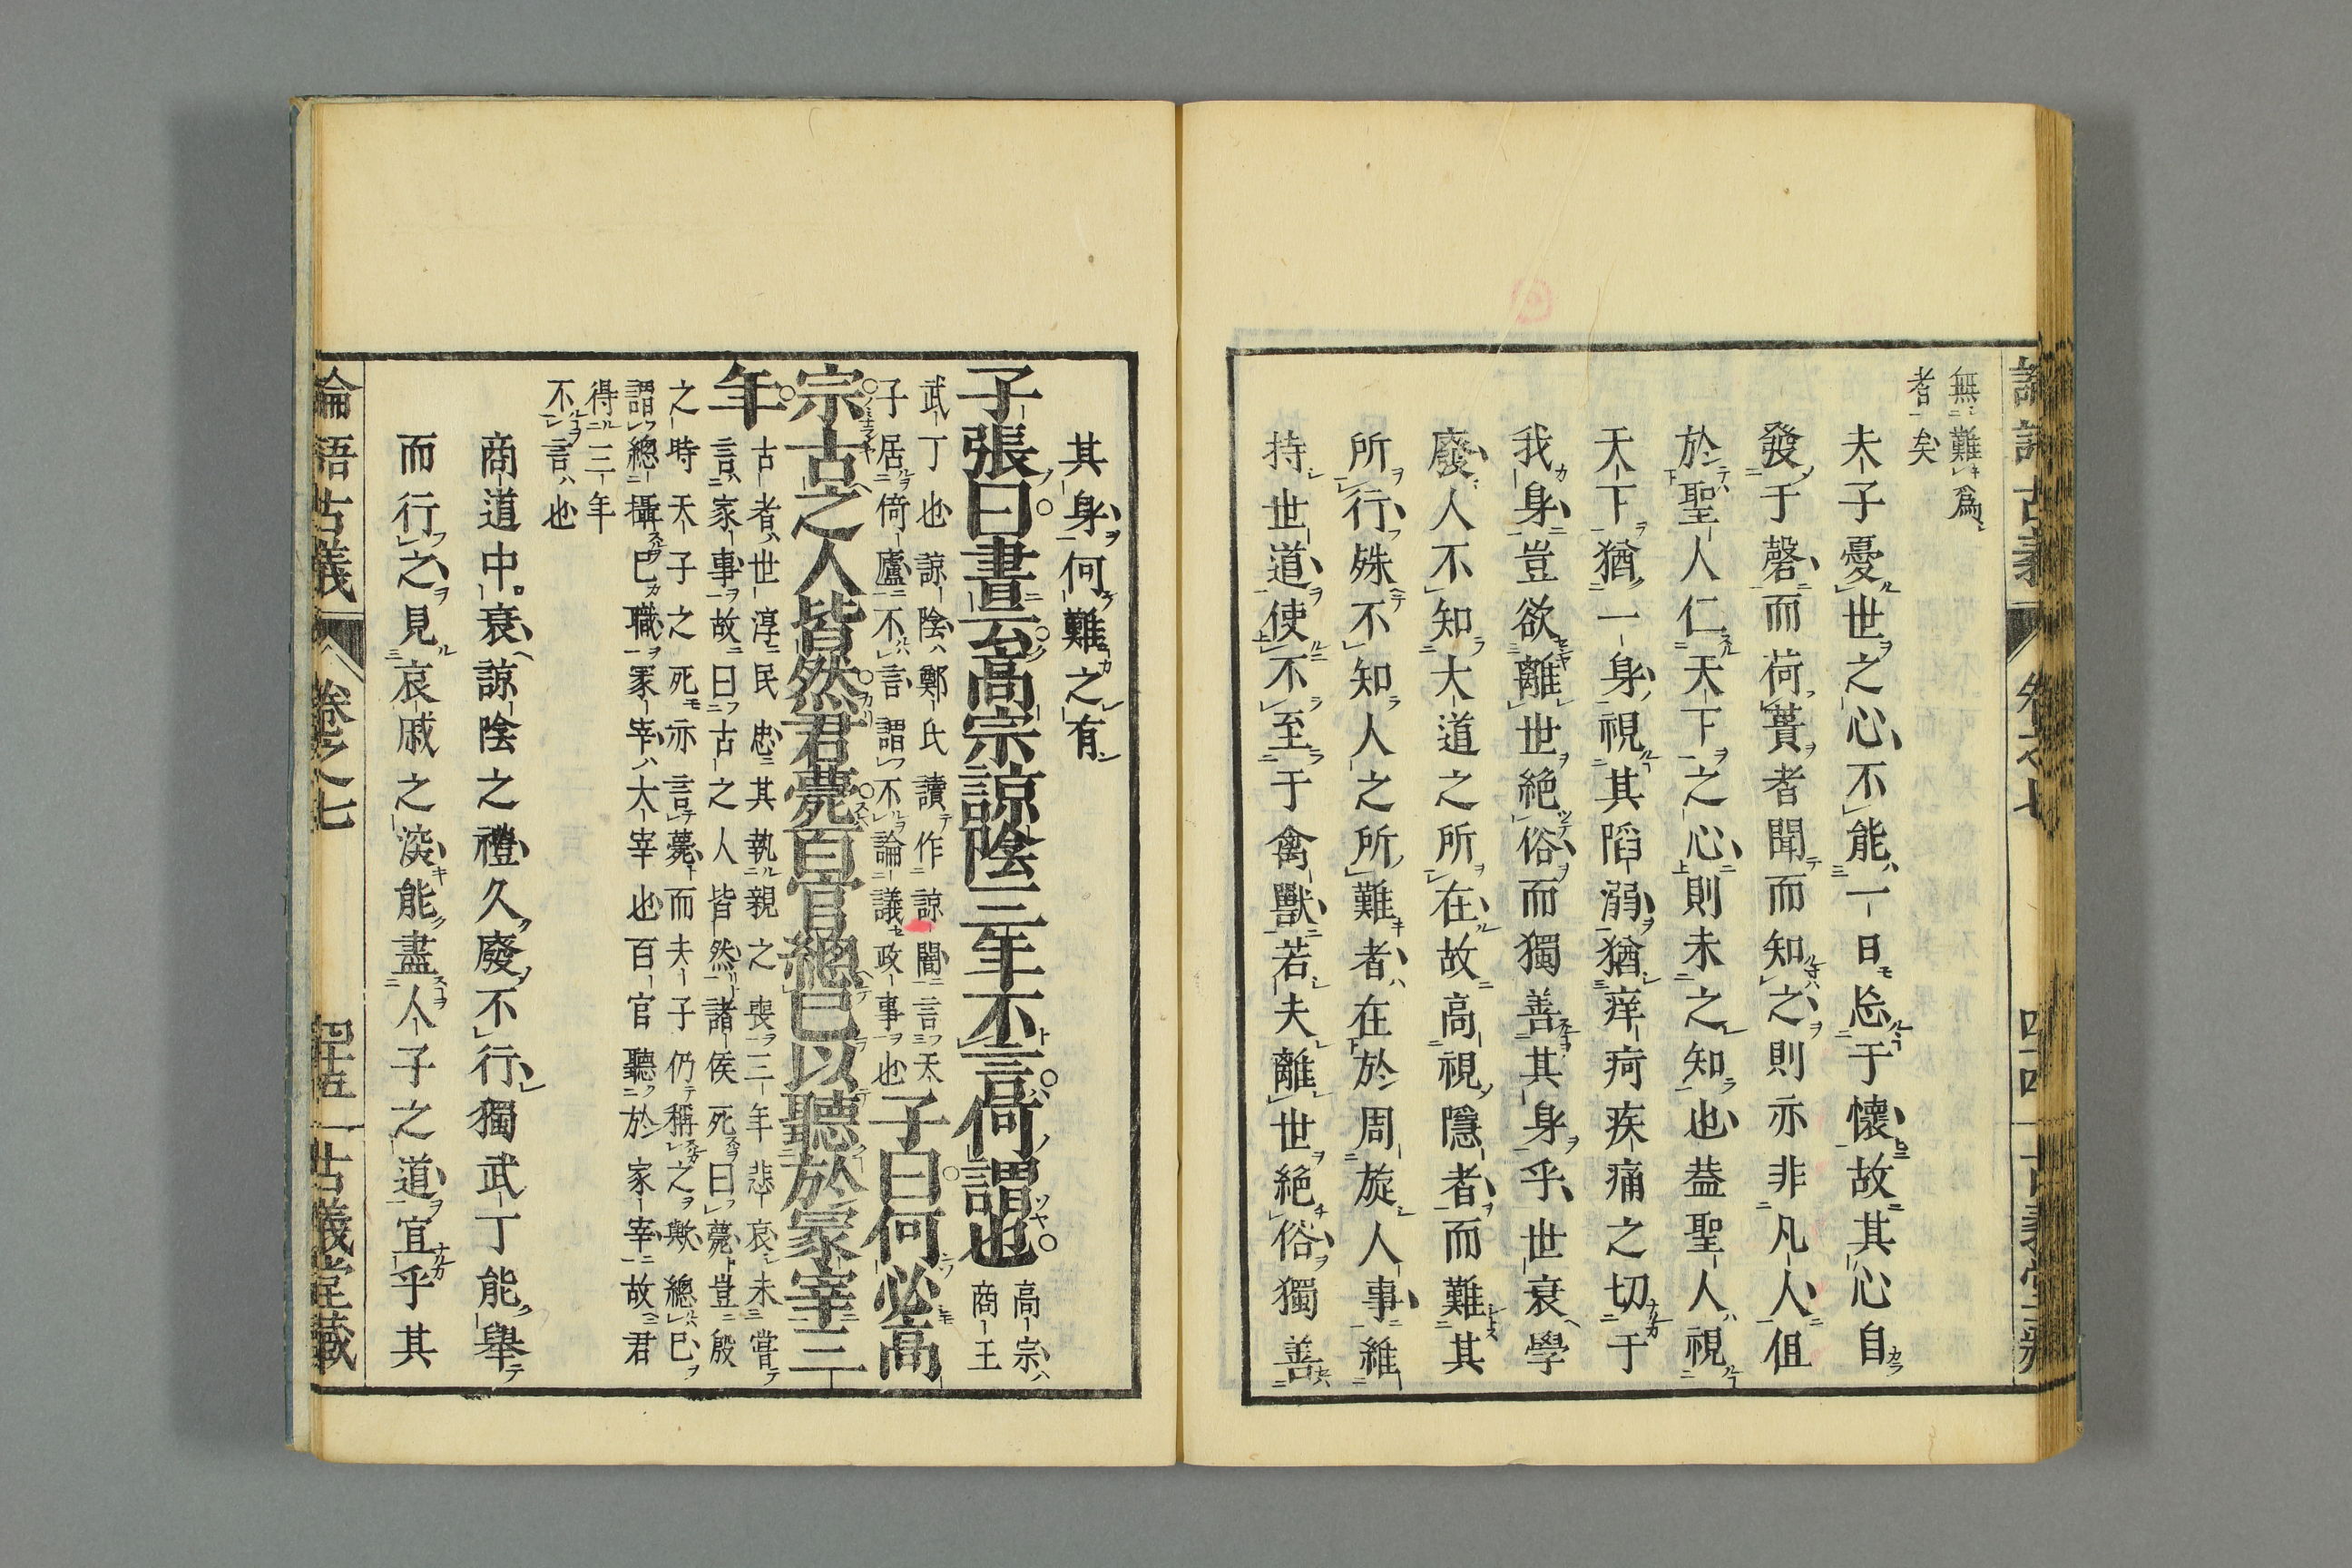 無難爲
者矣
夫子憂世之心不能一日忘于懷故其心自
發于磬而荷蕢者聞而知之則亦非凡人但
於聖人仁天下之心則未之知也蓋聖人視
天下猶一身視其陷溺猶痒疴疾痛之切于
我身豈欲離世絶俗而獨善其身乎世衰學
廢人不知大道之所在故高視隱者而難其
所行殊不知人之所難者在於周旋人事維
持世道使不至于禽獸若夫離世絶俗獨善
其身何難之有
子張曰書云高宗諒陰三年不言何謂也
高宗
商王
武丁也諒陰鄭氏讀作諒闇言天
子居倚廬不言謂不論議政事也
子曰何必高
宗古之人皆然君薨百官總已以聽於冢宰三
年
古者世淳民忠其執親之喪三年悲哀未嘗
言家事故曰古之人皆然諸侯死曰薨豈殷
之時天子之死亦言薨而夫子仍稱之歟總已
謂總攝已職冢宰大宰也百官聽於家宰故君
得三年
不言也
商道中衰諒陰之禮久廢不行獨武丁能舉
而行之見哀戚之深能盡人子之道宜乎其
論語古義
卷之七
四十五
古義堂藏